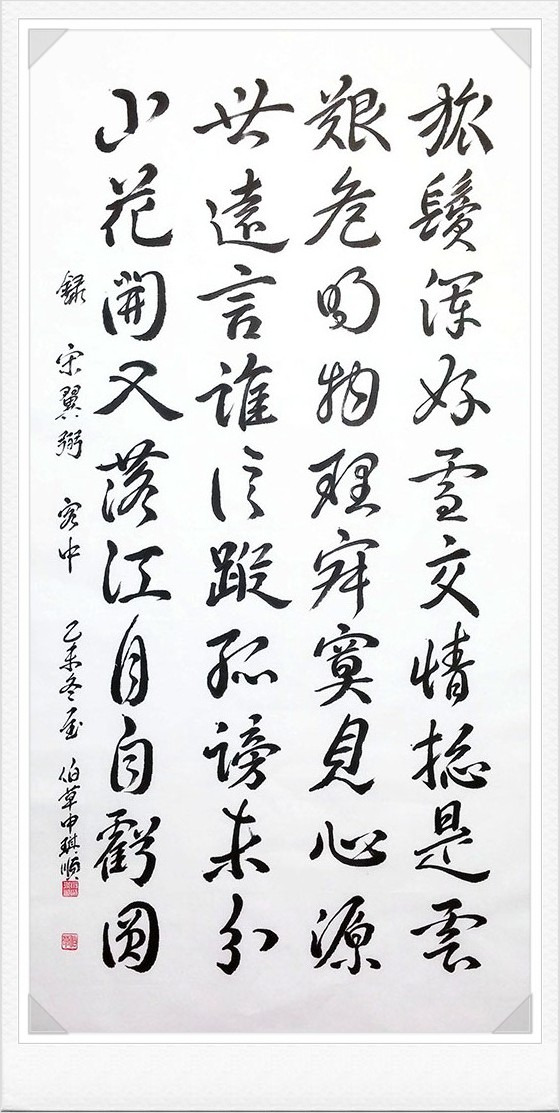 旅鬢渾如雪交情總是雲
艱危明物理寂寞見心源
世遠言誰信蹤孤謗未分
山花開又落江月自虧圓
錄 宋翼弼 客中 乙未冬至 伯草申琪順